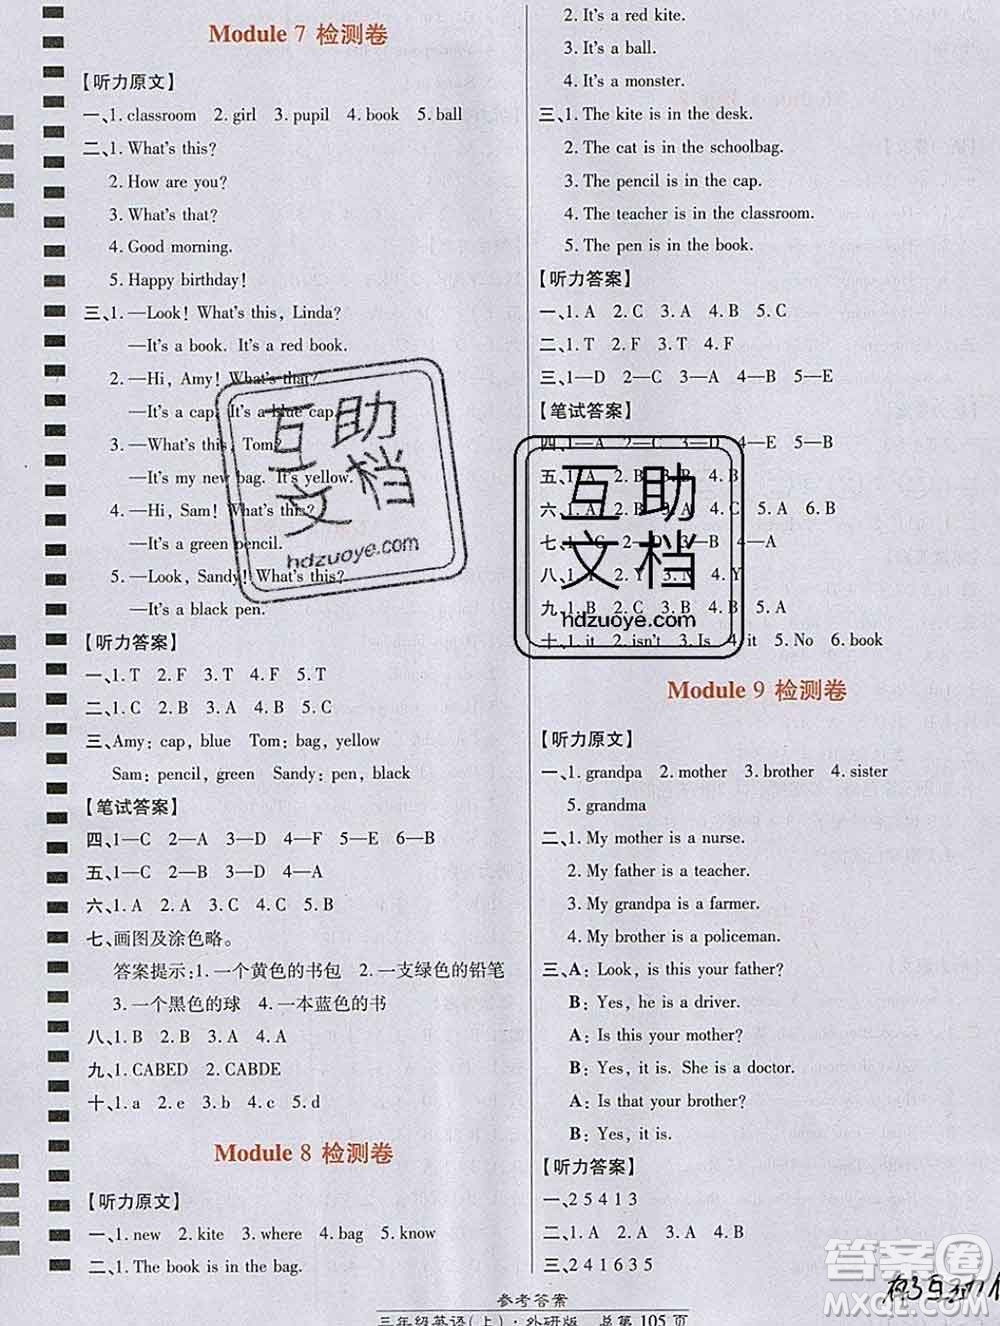 Module 7 检测卷
【听力原文】
一、1. classroom 2. girl 3. pupil 4. book 5. ball
二、1. What's this?
2. How are you?
3. What's that?
4. Good morning.
5. Happy birthday!
三、1. —Look! What's this, Linda?
—It's a book. It's a red book.
2. —Hi, Amy! What's that?
—It's a cap. It's a blue cap.
3. —What's this, Tom?
—It's my new bag. It's yellow.
4. —Hi, Sam! What's this?
—It's a green pencil.
5. —Look, Sandy! What's this?
—It's a black pen.
【听力答案】
一、1. T 2. F 3. F 4. F 5. T
二、1. C 2. B 3. A 4. B 5. C
三、Amy: cap, blue Tom: bag, yellow
Sam: pencil, green Sandy: pen, black
【笔试答案】
四、1—C 2—A 3—D 4—F 5—E 6—B
五、1—C 2—B 3—D 4—A
六、1. A 2. B 3. A 4. C 5. A
七、画图及涂色略。
答案提示:1. 一个黄色的书包 2. 一支绿色的铅笔
3. 一个黑色的球 4. 一本蓝色的书
八、1. B 2. A 3. B 4. A 5. C
九、1. CABED 2. CABDE
十、1. a 2. e 3. b 4. c 5. d
Module 8 检测卷
【听力原文】
一、1. new 2. kite 3. where 4. bag 5. know
二、1. The book is in the bag.
2. It's a red kite.
3. It's a ball.
4. It's a monster.
三、1. The kite is in the desk.
2. The cat is in the schoolbag.
3. The pencil is in the cap.
4. The teacher is in the classroom.
5. The pen is in the book.
【听力答案】
一、1. A 2. C 3. A 4. B 5. C
二、1. T 2. F 3. T 4. F
三、1—D 2—C 3—A 4—B 5—E
【笔试答案】
四、1—A 2—C 3—D 4—E 5—B
五、1. A 2. B 3. B 4. A 5.
六、1. A 2. C 3. C 4. C 5. A 6. B
七、1. C 2. 3—B 4—A
八、1. Y 2. Y 3. N 4. Y
九、1. B 2. C 3. A 4. B 5. A
十、1. it 2. isn't 3. Is 4. it 5. No 6. book
Module 9 检测卷
【听力原文】
一、1. grandpa 2. mother 3. brother 4. sister
5. grandma
二、1. My mother is a nurse.
2. My father is a teacher.
3. My grandpa is a farmer.
4. My brother is a policeman.
三、A: Look, is this your father?
B: Yes, he is a driver.
A: Is this your mother?
B: Yes, it is. She is a doctor.
A: Is that your brother?
B: Yes, it is.
【听力答案】
一、2 5 4 1 3
二、1. A 2. A 3. A 4. B
三、2 4 1 6 3 5
参考答案
三年级英语(上)·外研版 总第 105 页
互助文档
hdzuoye.com
互助文档
hdzuoye.com
答案圈